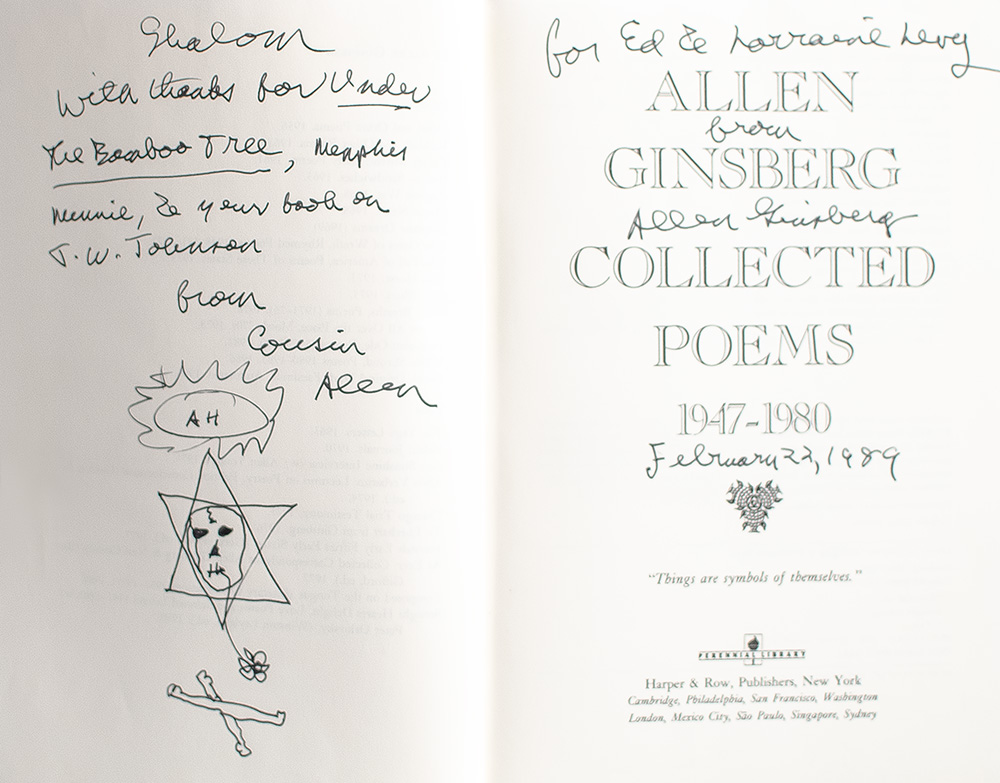 Shalom
With thanks for Under
The Bamboo Tree, Memphis
Minnie, & your book on
J.W. Johnson
from
Cousin
Allen
AH
for Ed & Lorraine Levy
ALLEN
from
GINSBERG
Allen Ginsberg
COLLECTED
POEMS
1947-1980
February 22, 1989
"Things are symbols of themselves."
PERENNIAL LIBRARY
Harper & Row, Publishers, New York
Cambridge, Philadelphia, San Francisco, Washington
London, Mexico City, São Paulo, Singapore, Sydney